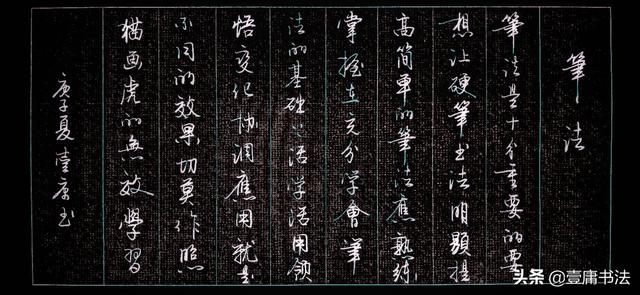 筆、法
筆法是十分重要的要
想让硬筆书法明顯提
高简单的筆法應熟練
掌握在充分学會筆
法的基础上活学活用领
悟变化协调應用就是
不同的效果切莫作照
猫画虎的無效學習
庚子夏壹庸书
头条 @壹庸书法